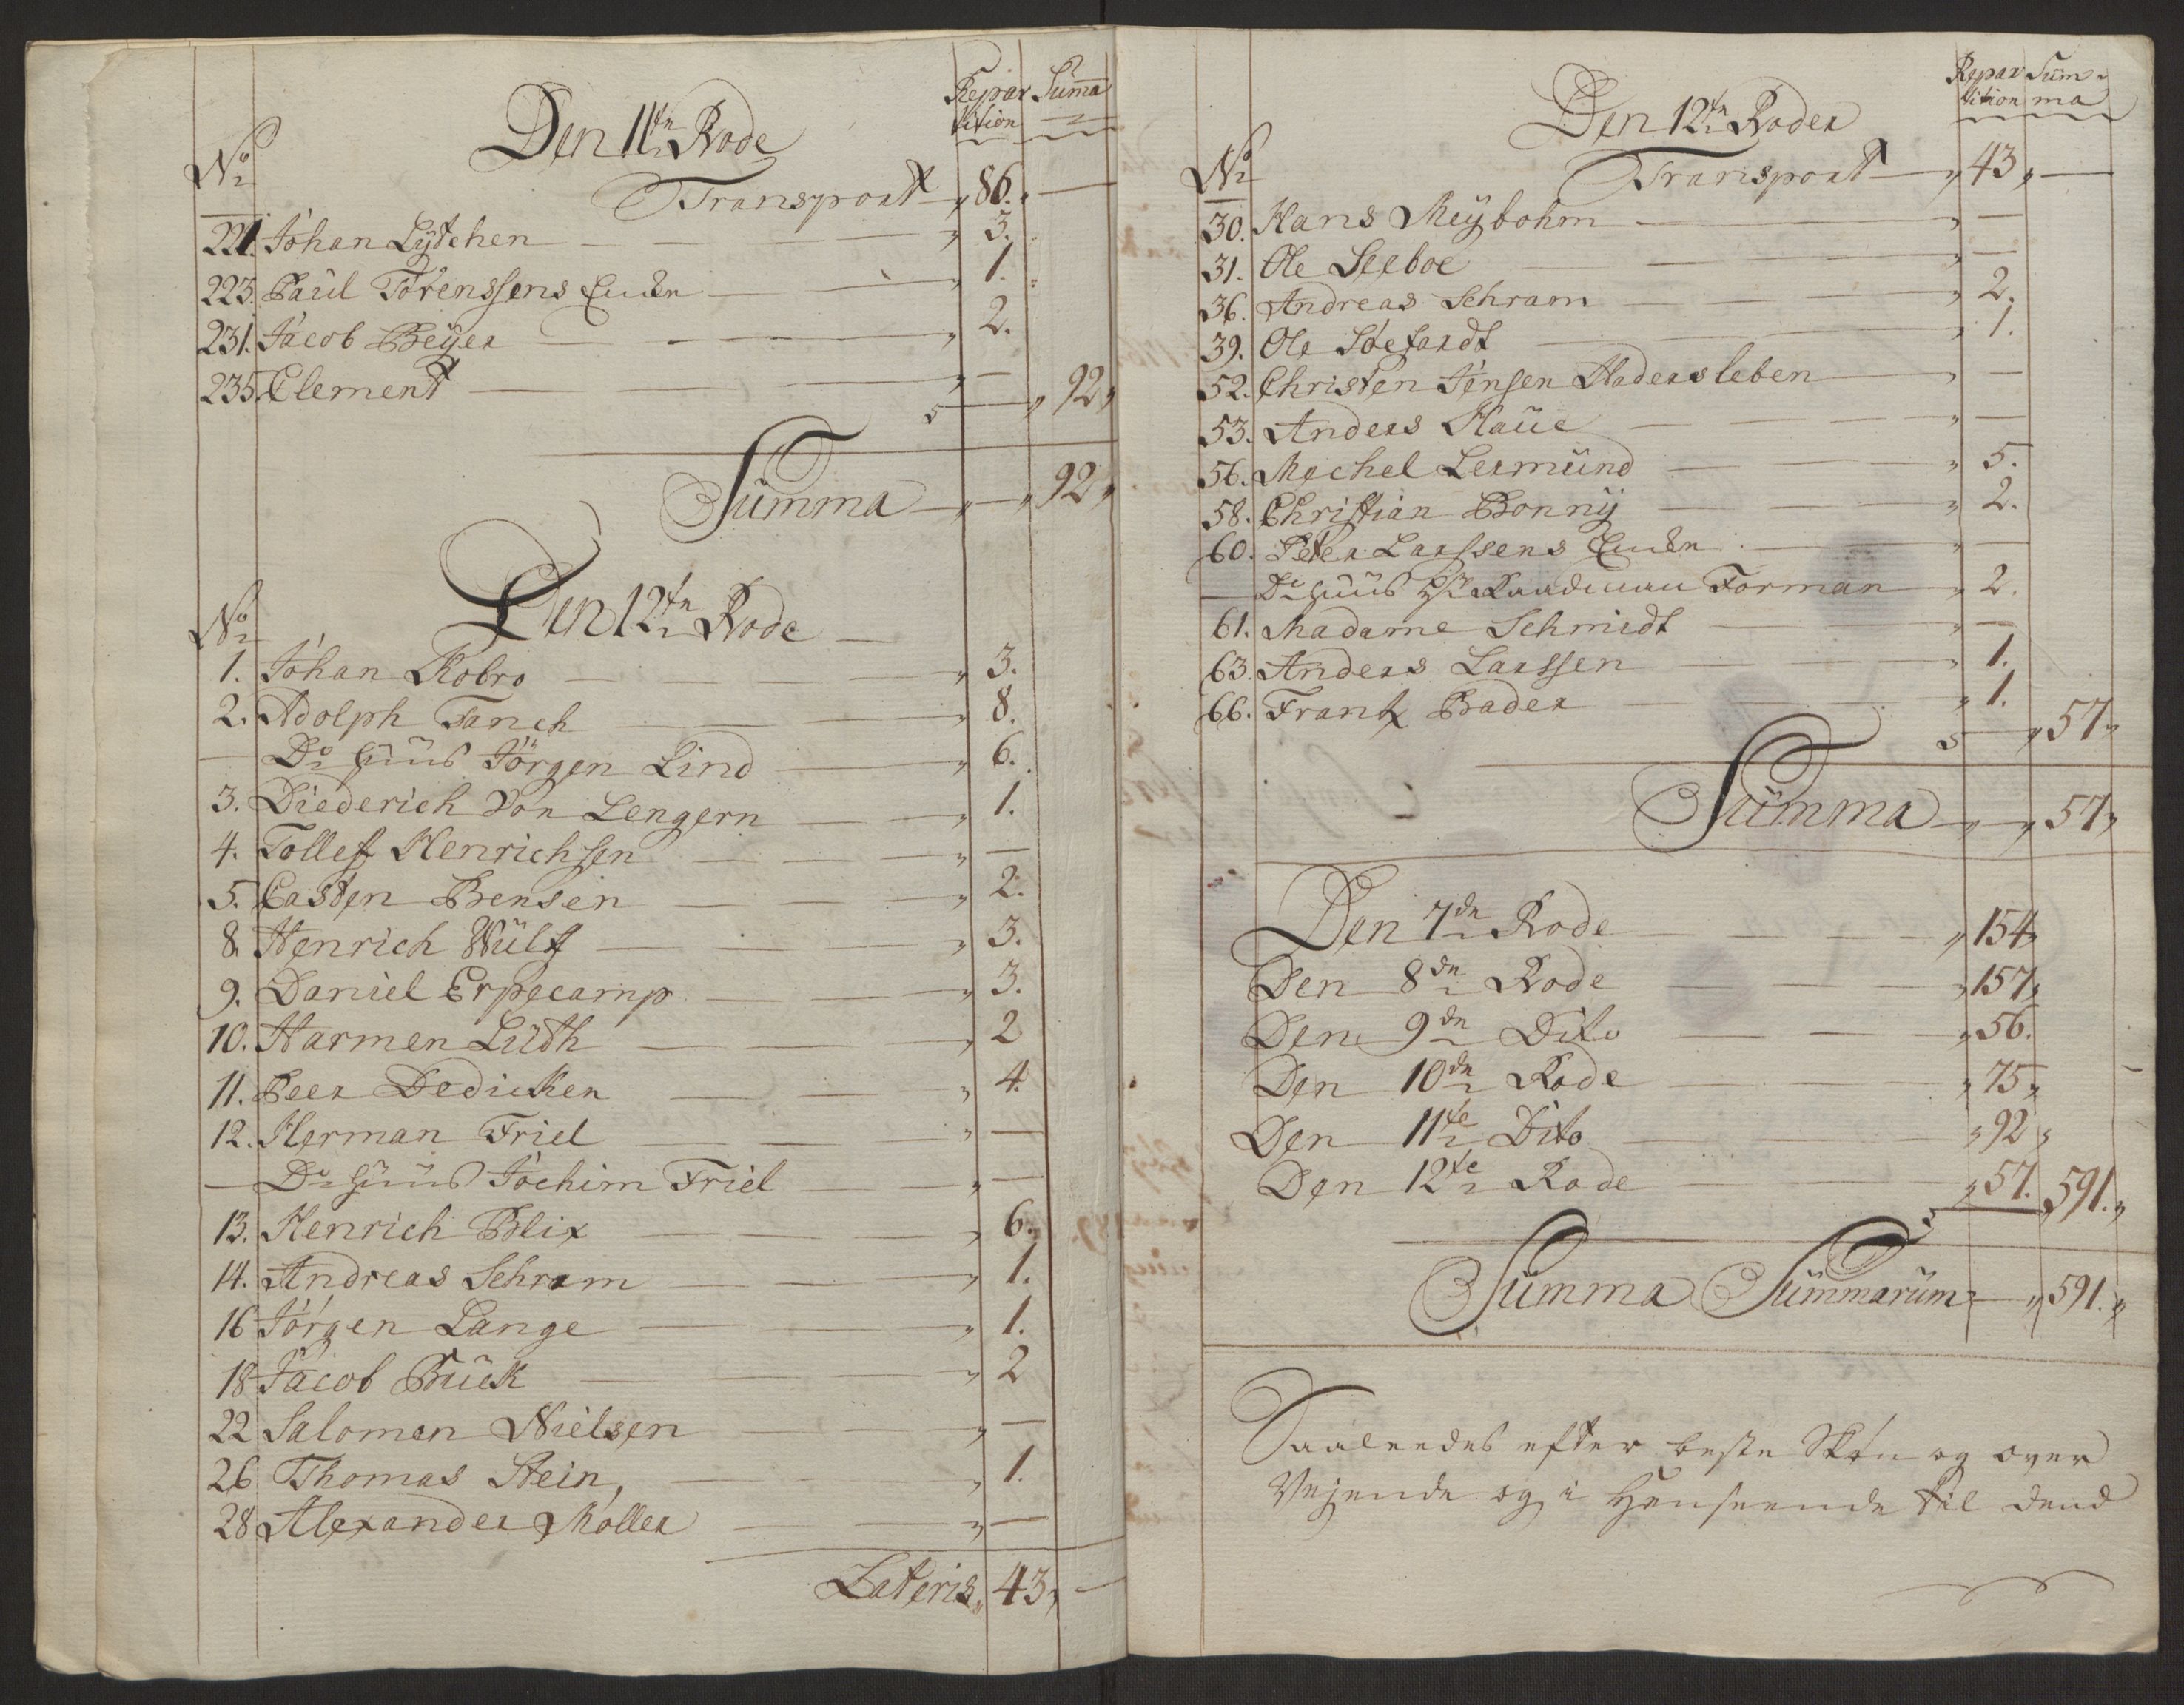 Repar Summa
tition
Den 11tn Rode
No
Transport 86. —
221. Johan Lytchen — 3.
223. Paul Törenssens Encke — 1.
231. Jacob Beyer — 2.
235. Clement — —
5 — 92
Summa — 92
Den 12tn Rode
No
1. Johan Kobro — 3.
2. Adolph Tanch — 8.
— Do Huus Jörgen Lind — 6.
3. Diederich Von Lengern — 1.
4. Tollef Henrichsen — —
5. Casten Bensen — 2.
8. Henrich Wülf — 3.
9. Daniel Erpecamp — 3.
10. Harmen Lüth — 2
11. Peer Dedicken — 4.
12. Herman Friel — —
— Do Huus Jochim Friel — —
13. Henrich Blix — 6.
14. Andreas Schram — 1.
16 Jörgen Lange — 1.
18 Jacob Buck — 2
22 Salomon Nielsen — —
26 Thomas Stein, — 1.
28 Alexander Møller — —
Lateris 43 —
Repar Sum
tition ma
Den 12tn Roder
No
Transport — 43 —
30. Hans Meybohm — —
31. Ole Seeboe — —
36. Andreas Schram — 2.
39. Ole Søefardt — 1.
52. Christen Jensen Hadersleben — —
53. Anders Haüe — —
56. Mechel Lermünd — 5.
58. Christian Bonny — 2.
60. Peter Larssens Encke — —
— Do Huus Hr Raadman Forman — 2.
61. Madame Schmidt — —
63. Anders Larssen — 1.
66. Frantz Bader — 1.
5 — 57
Summa — 57
Den 7de Rode — 154
Den 8de Rode — 157
Den 9de Dito — 56.
Den 10de Rode — 75
Den 11te Dito — 92
Den 12te Rode — 57. 591.
Summa Summarum — 591.
Saaleedes efter beste Skøn og over
Vejende og i Henseende til dend